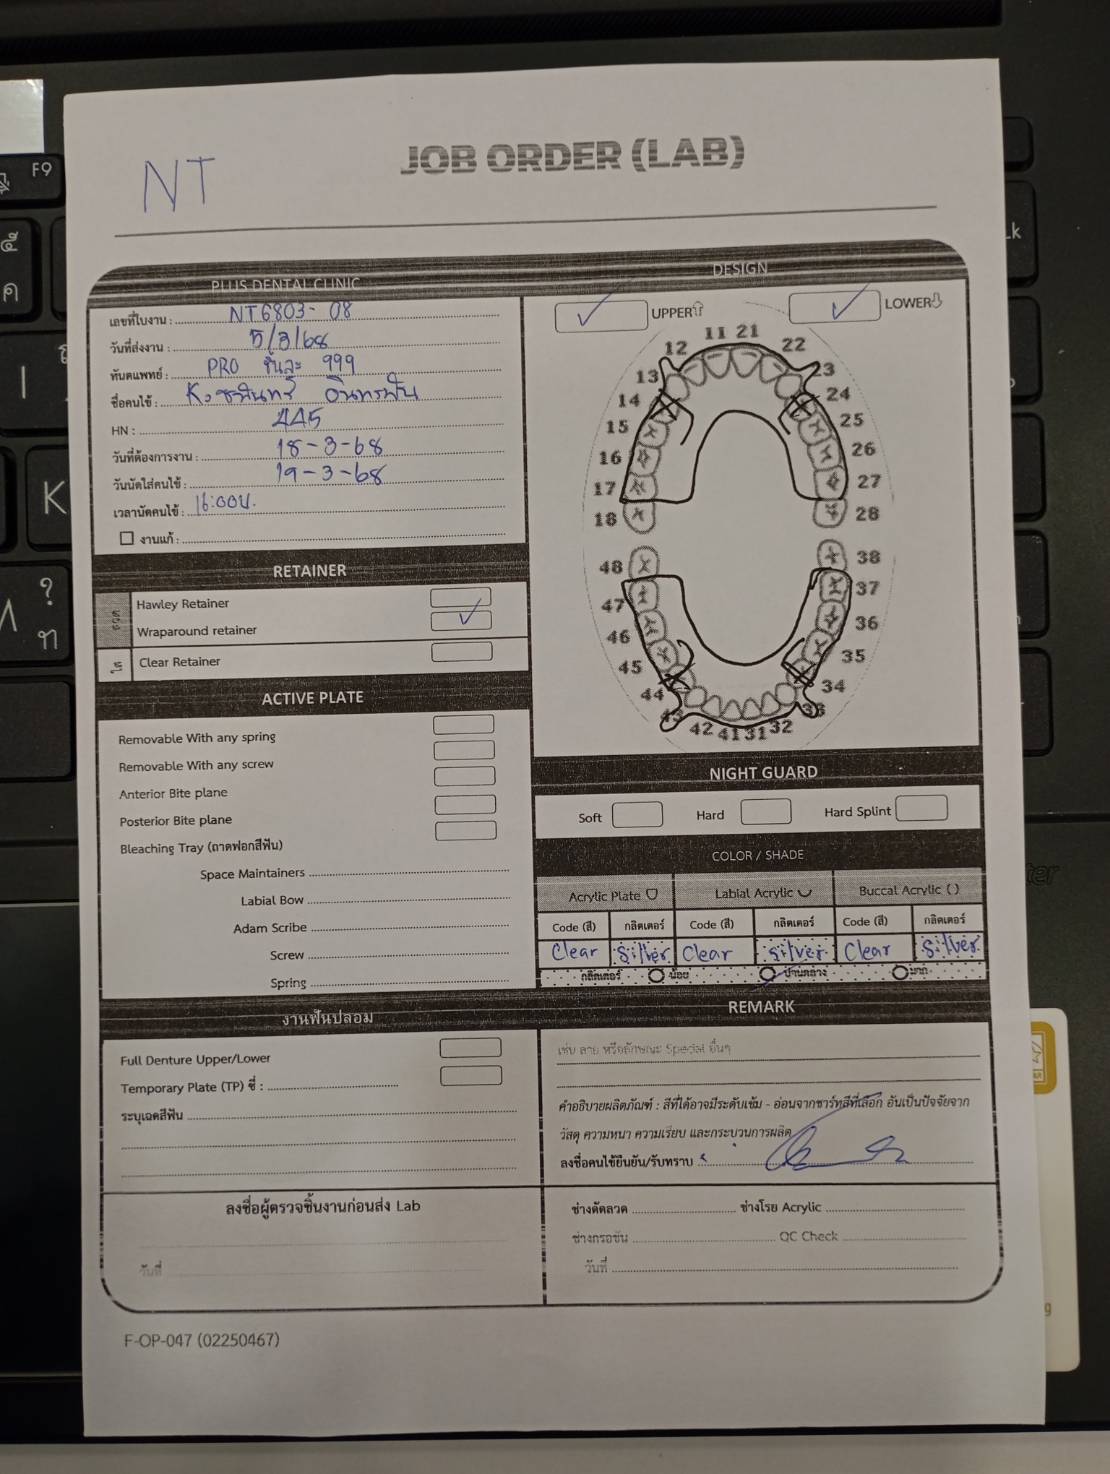 NT
JOB ORDER (LAB)
PLUS DENTAL CLINIC
เลขที่ใบงาน : NT6803-08
วันที่ส่งงาน : 5/3/68
ทันตแพทย์ : PRO ชิ้นละ 999
ชื่อคนไข้ : K.
HN : 445
วันที่ต้องการงาน : 18-3-68
วันนัดใส่คนไข้ : 19-3-68
เวลานัดคนไข้ : 16:00น.
งานแก้ :
RETAINER
ลวด
Hawley Retainer
Wraparound retainer
ใส
Clear Retainer
ACTIVE PLATE
Removable With any spring
Removable With any screw
Anterior Bite plane
Posterior Bite plane
Bleaching Tray (ถาดฟอกสีฟัน)
Space Maintainers
Labial Bow
Adam Scribe
Screw
Spring
งานฟันปลอม
Full Denture Upper/Lower
Temporary Plate (TP) ซี่ :
ระบุเฉดสีฟัน
DESIGN
UPPER⇧ LOWER⇩
11 21
12 22
13 23
14 24
15 25
16 26
17 27
18 28
48 38
47 37
46 36
45 35
44 34
43 33
42 41 31 32
NIGHT GUARD
Soft Hard Hard Splint
COLOR / SHADE
Acrylic Plate Labial Acrylic Buccal Acrylic ( )
Code (สี) กลิตเตอร์ Code (สี) กลิตเตอร์ Code (สี) กลิตเตอร์
Clear Silver Clear silver Clear Silver
กลิตเตอร์ น้อย ปานกลาง มาก
REMARK
เช่น ลาย หรือลักษณะ Special อื่นๆ
คำอธิบายผลิตภัณฑ์ : สีที่ได้อาจมีระดับเข้ม - อ่อนจากชาร์ทสีที่เลือก อันเป็นปัจจัยจาก
วัสดุ ความหนา ความเรียบ และกระบวนการผลิต
ลงชื่อคนไข้ยืนยัน/รับทราบ
ลงชื่อผู้ตรวจชิ้นงานก่อนส่ง Lab
วันที่
ช่างดัดลวด ช่างโรย Acrylic
ช่างกรอขัน QC Check
วันที่
F-OP-047 (02250467)
F9
K